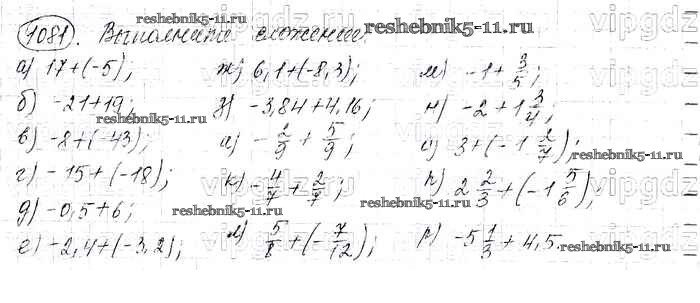 1081. Выполните сложение:
а) 17+(-5); ж) 6,1+(-8,3); м) -1+3/5;
б) -21+19; з) -3,84+4,16; н) -2+1 3/4;
в) -8+(-43); и) -2/9+5/9; о) 3+(-1 2/7);
г) -15+(-18); к) -4/7+2/7; п) 2 2/3+(-1 5/6);
д) -0,5+6;
е) -2,4+(-3,2); л) 5/8+(-7/12); р) -5 1/3+4,5.
reshebnik5-11.ru
reshebnik5-11.ru
reshebnik5-11.ru
reshebnik5-11.ru
reshebnik5-11.ru
reshebnik5-11.ru
vipgdz
vipgdz
vipgdz